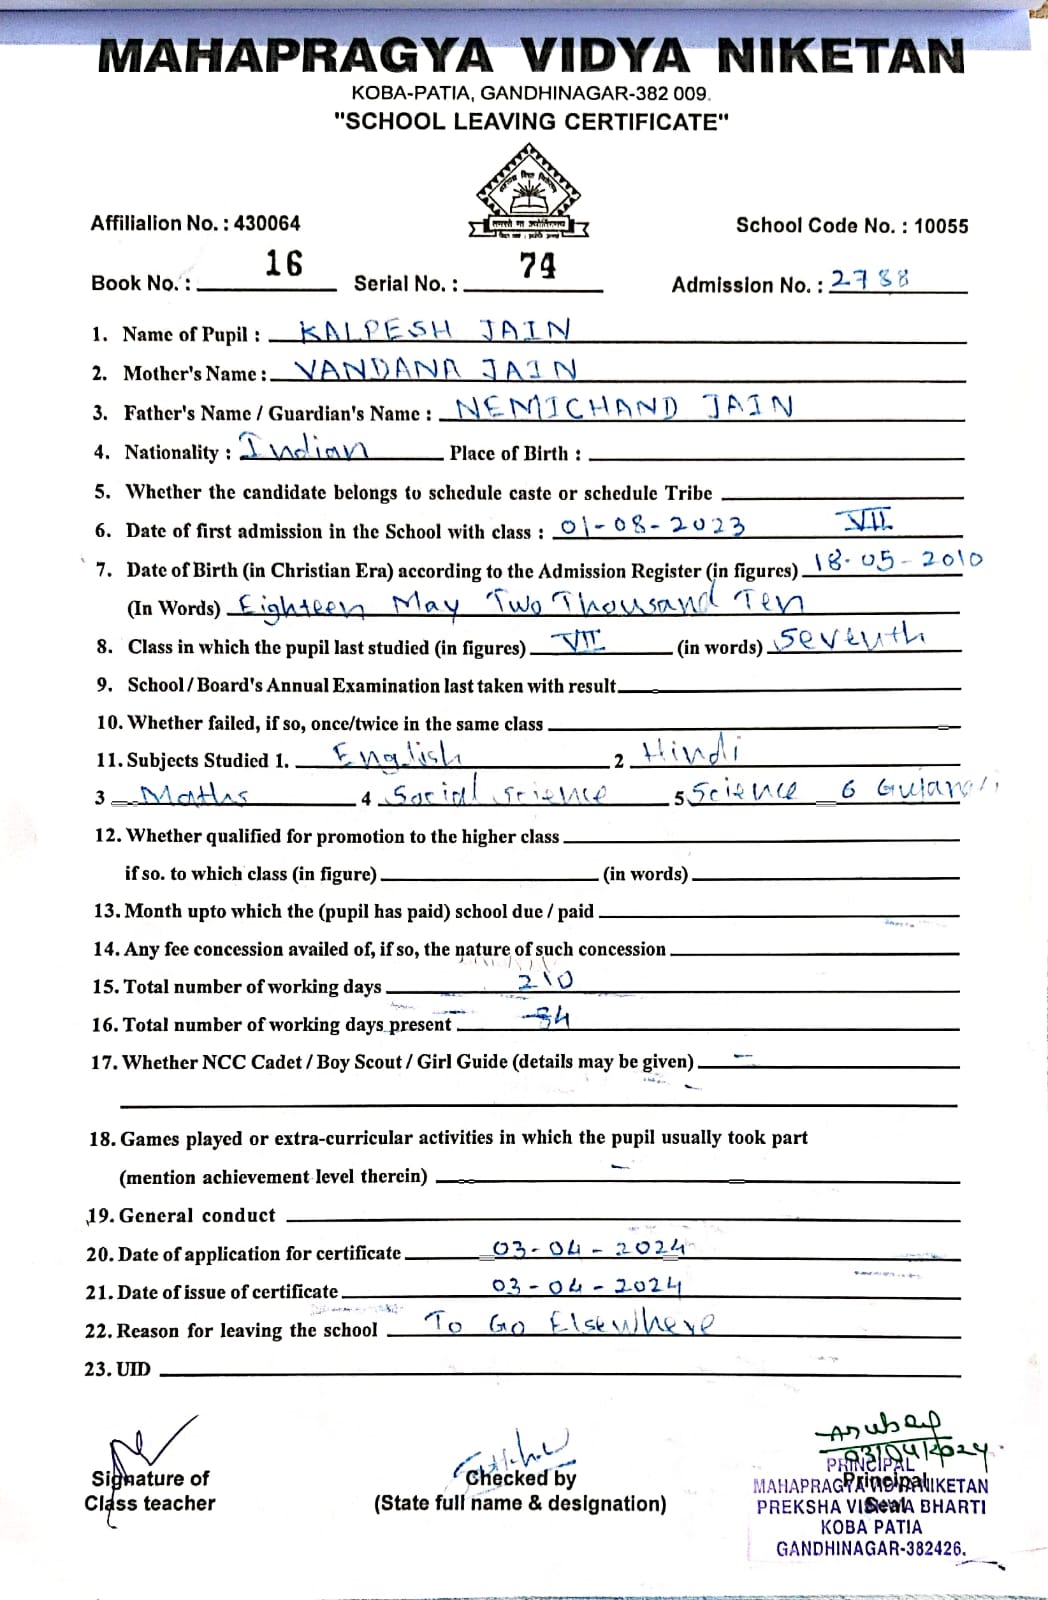 MAHAPRAGYA VIDYA NIKETAN
KOBA-PATIA, GANDHINAGAR-382 009.
"SCHOOL LEAVING CERTIFICATE"
Affilialion No. : 430064
School Code No. : 10055
Book No. : 16 Serial No. : 74 Admission No. : 2788
1. Name of Pupil : KALPESH JAIN
2. Mother's Name : VANDANA JAIN
3. Father's Name / Guardian's Name : NEMICHAND JAIN
4. Nationality : Indian Place of Birth :
5. Whether the candidate belongs to schedule caste or schedule Tribe
6. Date of first admission in the School with class : 01-08-2023 VII
7. Date of Birth (in Christian Era) according to the Admission Register (in figures) 18-05-2010
(In Words) Eighteen May Two Thousand Ten
8. Class in which the pupil last studied (in figures) VII (in words) Seventh
9. School / Board's Annual Examination last taken with result
10. Whether failed, if so, once/twice in the same class
11. Subjects Studied 1. English 2 Hindi
3 Maths 4 Social Science 5 Science 6 Gujarati
12. Whether qualified for promotion to the higher class
if so. to which class (in figure) (in words)
13. Month upto which the (pupil has paid) school due / paid
14. Any fee concession availed of, if so, the nature of such concession
15. Total number of working days 210
16. Total number of working days present
17. Whether NCC Cadet / Boy Scout / Girl Guide (details may be given) –
18. Games played or extra-curricular activities in which the pupil usually took part
(mention achievement level therein) –
19. General conduct
20. Date of application for certificate 03-04-2024
21. Date of issue of certificate 03-04-2024
22. Reason for leaving the school To Go Elsewhere
23. UID
03/04/2024
Signature of
Class teacher
Checked by
(State full name & designation)
Principal
Seal
PRINCIPAL
MAHAPRAGYA VIDYA NIKETAN
PREKSHA VISHWA BHARTI
KOBA PATIA
GANDHINAGAR-382426.